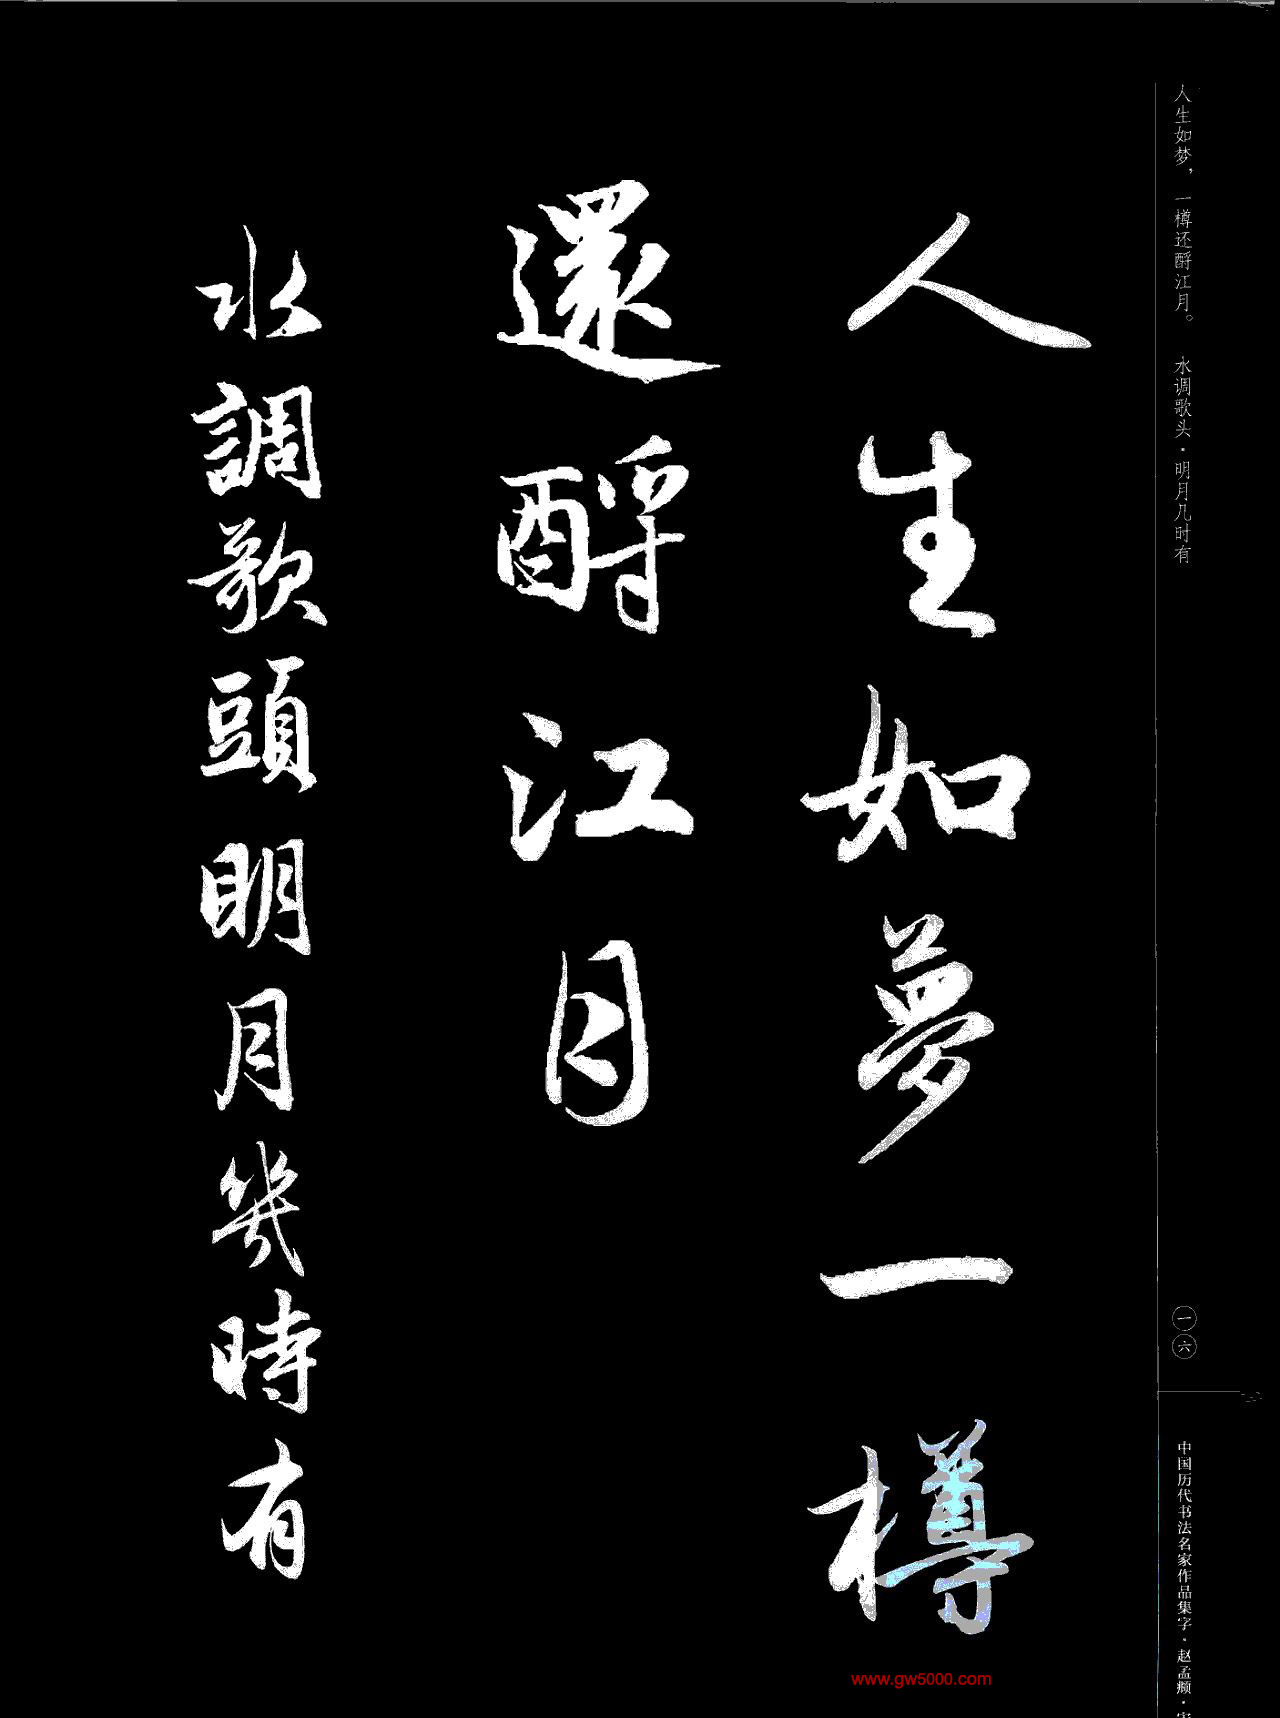 人生如梦，一樽还酹江月。 水调歌头·明月几时有
人生如夢一樽
還酹江月
水調歌頭明月幾時有
一六
中国历代书法名家作品集字·赵孟頫·宋
www.gw5000.com